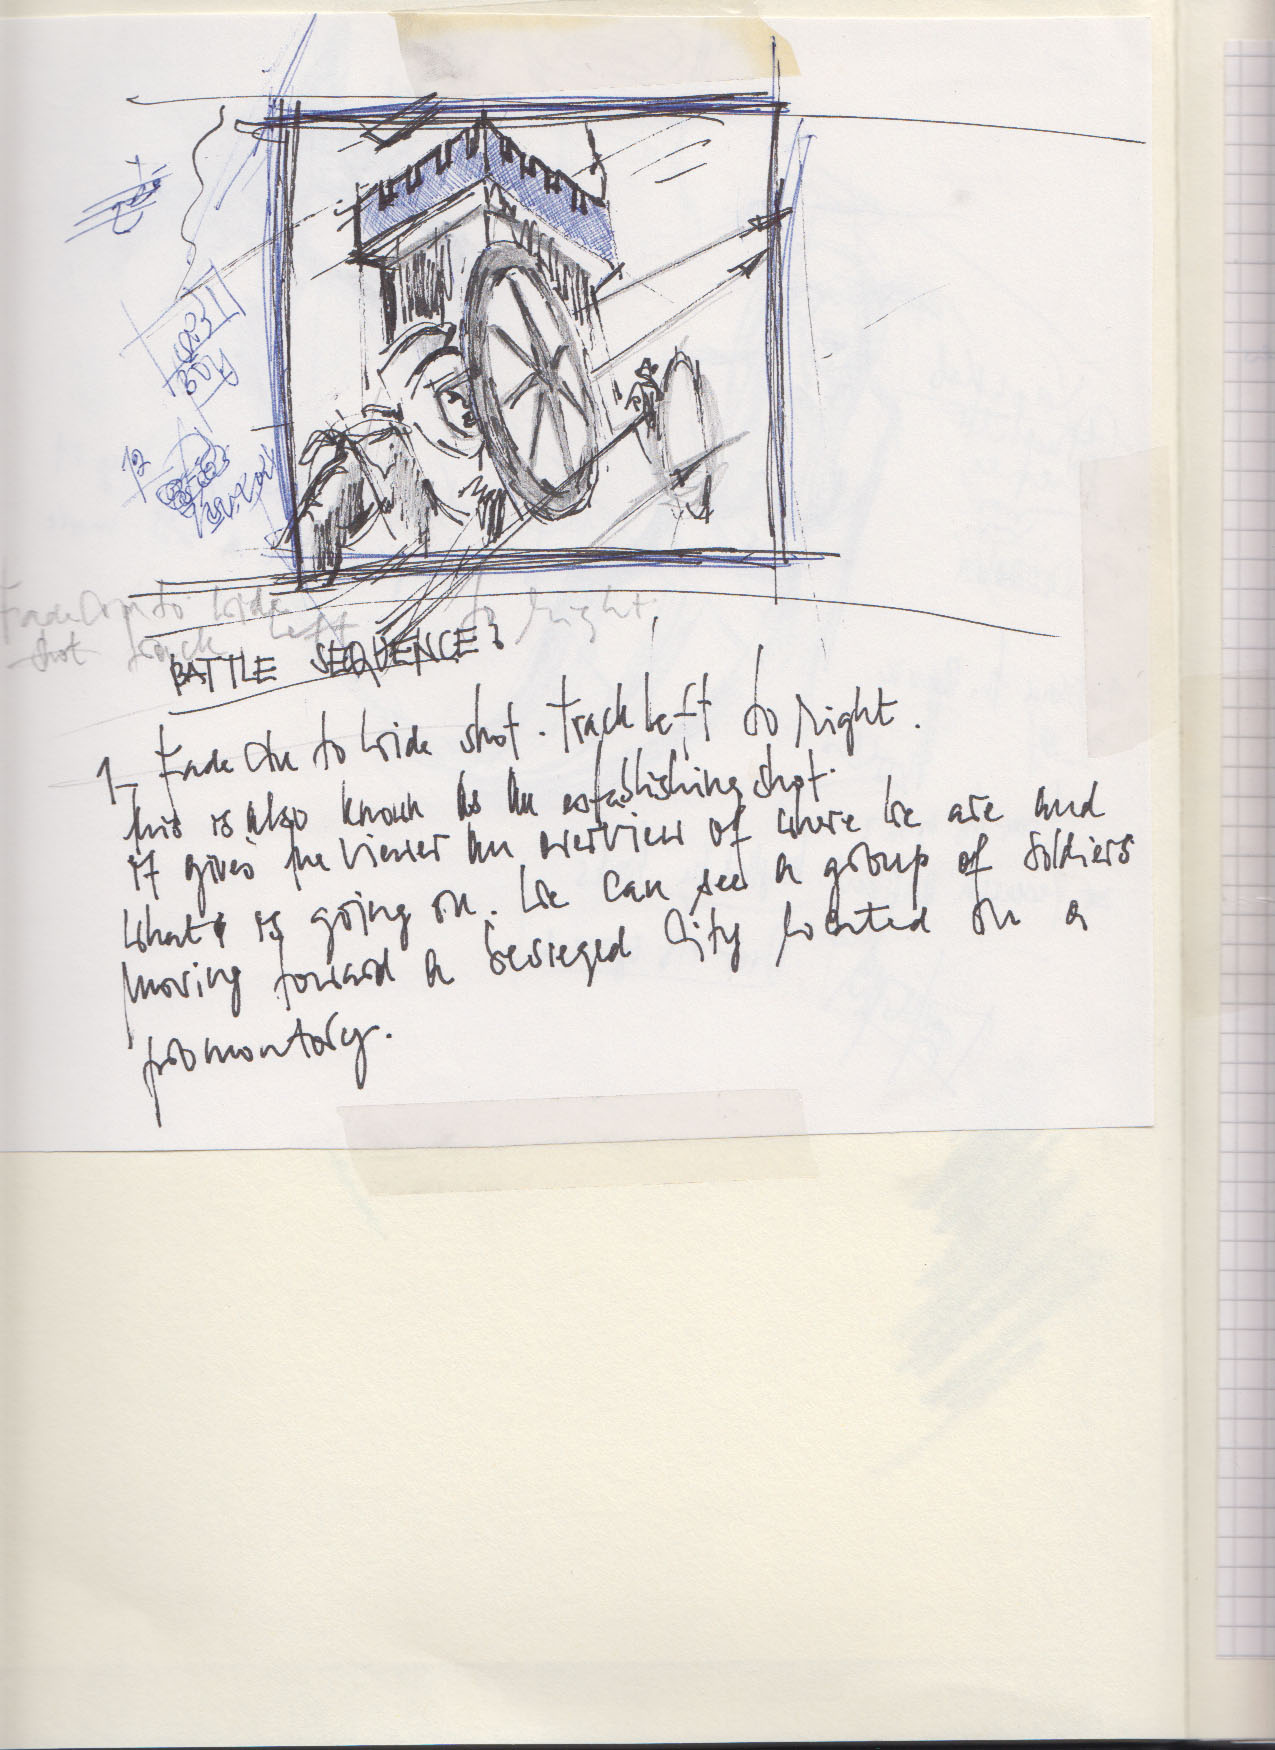 12
Fade On to Wide
shot track left to right.
BATTLE SEQUENCE:
1_ Fade On to Wide shot. Track left to right.
this is also known as an establishing shot.
it gives the viewer an overview of where we are and
what is going on. We can see a group of soldiers
moving toward a besieged city located on a
promontory.